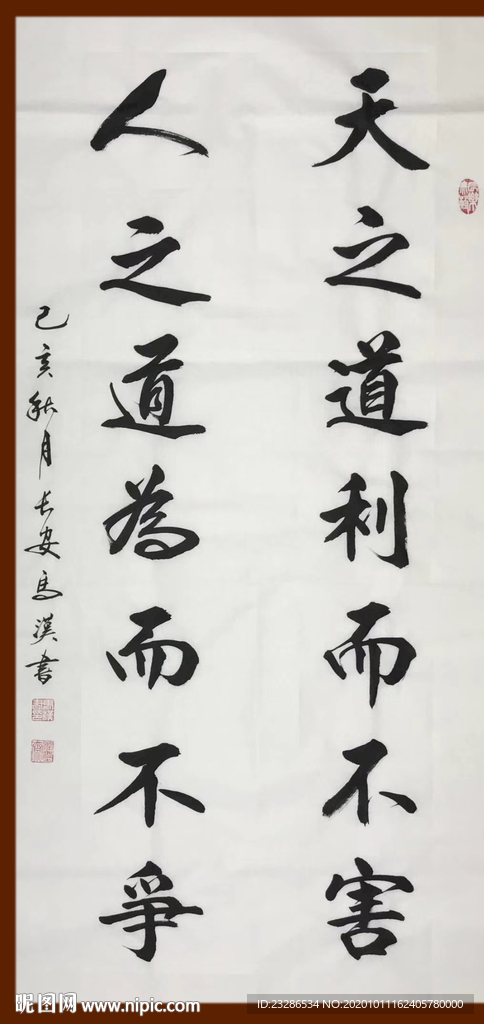 天之道利而不害
人之道為而不爭
己亥秋月长安马漢書
昵图网 www.nipic.com
ID:23286534 NO:20201011162405780000